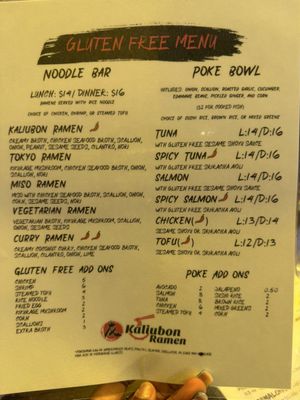 GLUTEN FREE MENU
NOODLE BAR
LUNCH: $14/ DINNER: $16
RAMENS SERVED WITH RICE NOODLE
CHOICE OF CHICKEN, SHRIMP, OR STEAMED TOFU
KALIUBON RAMEN
CREAMY BROTH, CHICKEN SEAFOOD BROTH, SCALLION,
ONION, PEANUT, SESAME SEEDS, CILANTRO, NORI
TOKYO RAMEN
KIKURAGE MUSHROOM, CHICKEN SEAFOOD BROTH, SCALLION,
CORN, NORI
MISO RAMEN
MISO WITH CHICKEN SEAFOOD BROTH, SCALLION, ONION,
CORN, SESAME SEEDS, NORI
VEGETARIAN RAMEN
VEGETARIAN BROTH, KIKURAGE MUSHROOM, SCALLION,
ONION, SESAME SEEDS
CURRY RAMEN
CREAMY COCONUT CURRY, CHICKEN SEAFOOD BROTH,
SCALLION, CILANTRO, ONION, LIME
GLUTEN FREE ADD ONS
CHICKEN
SHRIMP 6
STEAMED TOFU 4
RICE NOODLE 3
FRIED EGG 2
KIKURAGE MUSHROOM 2
CORN 2
SCALLIONS 1
EXTRA BROTH 3
POKE BOWL
INCLUDES: ONION, SCALLION, ROASTED GARLIC, CUCUMBER,
EDAMAME BEANS, PICKLED GINGER, AND CORN
($2 FOR COOKED FISH)
CHOICE OF SUSHI RICE, BROWN RICE, OR MIXED GREENS
TUNA L:14/D:16
WITH GLUTEN FREE SESAME SHOYU SAUCE
SPICY TUNA L:14/D:16
WITH GLUTEN FREE SRIRACHA AIOLI
SALMON L:14/D:16
WITH GLUTEN FREE SESAME SHOYU SAUCE
SPICY SALMON L:14/D:16
WITH GLUTEN FREE SRIRACHA AIOLI
CHICKEN( ) L:13/D:14
SESAME SHOYU OR SRIRACHA AIOLI
TOFU( ) L:12/D:13
SESAME SHOYU OR SRIRACHA AIOLI
POKE ADD ONS
AVOCADO 2 JALAPENO 0.50
SALMON 8 SUSHI RICE 2
TUNA 8 BROWN RICE 2
CHICKEN 6 MIXED GREENS 2
STEAMED TOFU 4 CORN 2
Kaliubon
Ramen